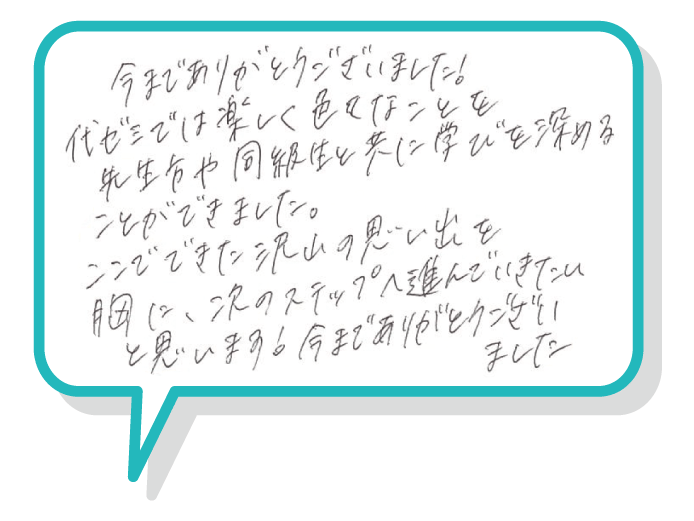 今までありがとうございました!
代ゼミでは楽しく色々なことを
先生方や同級生と共に学びを深める
ことができました。
ここでできた沢山の思い出を
胸に、次のステップへ進んでいきたい
と思います!今までありがとうござい
ました